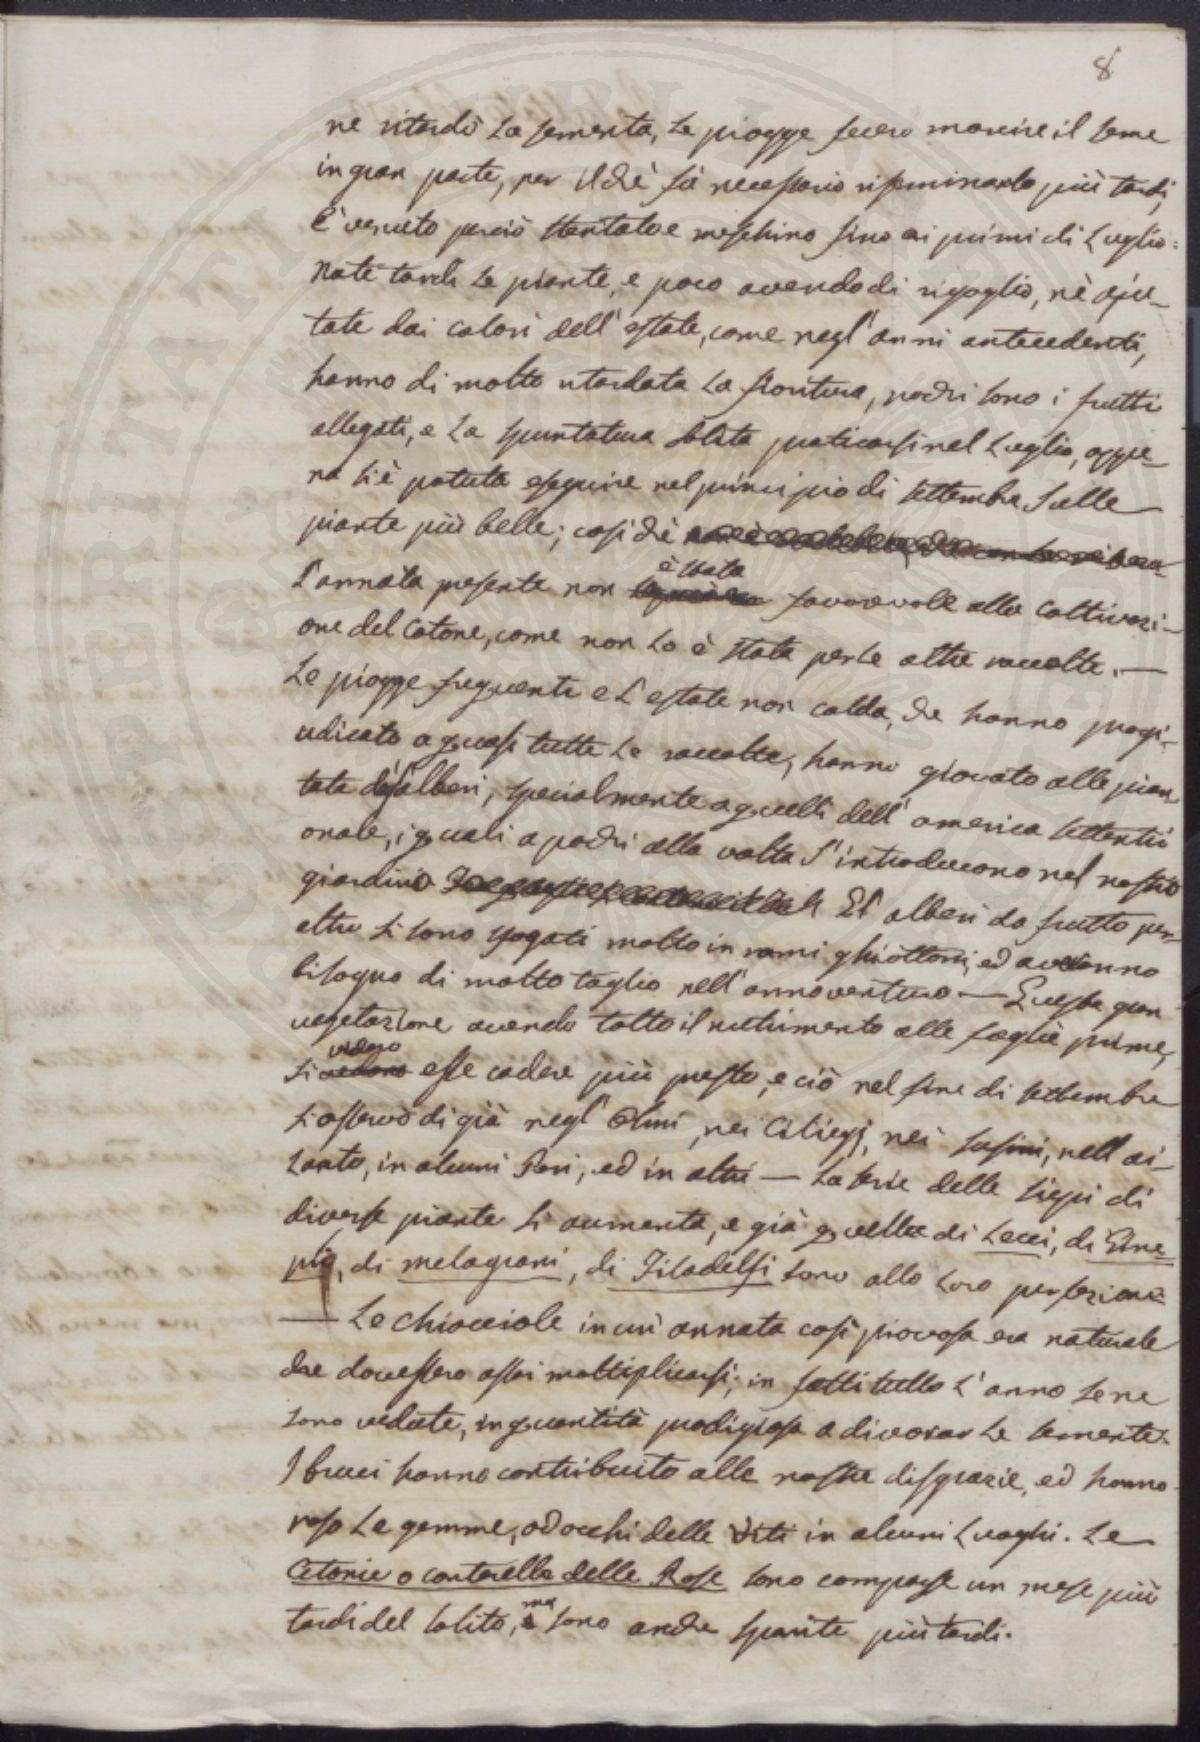 8
ne ritardò la sementa, le piogge fecero marcire il seme
in gran parte, per il chè fù necessario riseminarlo più tardi,
è venuto perciò stentato e meschino fino ai primi di Luglio:
Nate tardi le piante, e poco avendo di rigoglio, nè aju-
tate dai calori dell'estate, come negl'anni antecedenti,
hanno di molto ritardata la fioritura, pochi sono i frutti
allegati, e la spuntatura solita praticarsi nel Luglio, appe-
na si è potuta eseguire nel principio di settembre sulle
piante più belle; cosi chè
è stata
L'annata presente non favorevole alla coltivazi-
one del Cotone, come non lo è stata per le altre raccolte. —
Le piogge frequenti e l'estate non calda, che hanno pregi-
udicato a quasi tutte le raccolte, hanno giovato alle pian-
tate degl'alberi, specialmente a quelli dell'america settentri
onale, i quali a pochi alla volta s'introducono nel nostro
giardino Gl'alberi da frutto per-
altro si sono sfogati molto in rami ghiottoni, ed avranno
bisogno di molto taglio nell'anno venturo — Questa gran
vegetazione avendo tolto il nutrimento alle foglie prime,
videro
si vedono esse cadere più presto, e ciò nel fine di settembre
si osservò di già negl'Olmi, nei Ciliegj, nei susini, nell'ai-
lanto, in alcuni Peri, ed in altri — La serie delle siepi di
diverse piante si aumenta, e già quelle di Lecci, di Gine-
pro, di melagrani, di Filadelfi sono alla loro perfezione
— Le chiocciole in un'annata così piovosa era naturale
che dovessero assai moltiplicarsi; in fatti tutto l'anno se ne
sono vedute, in quantità prodigiosa a divorar le semente.
I bruci hanno contribuito alle nostre disgrazie, ed hanno
roso le gemme, od occhi delle Viti in alcuni Luoghi. Le
Cetonie o cantarelle delle Rose sono comparse un mese più
ma
tardi del solito, sono anche sparite più tardi.